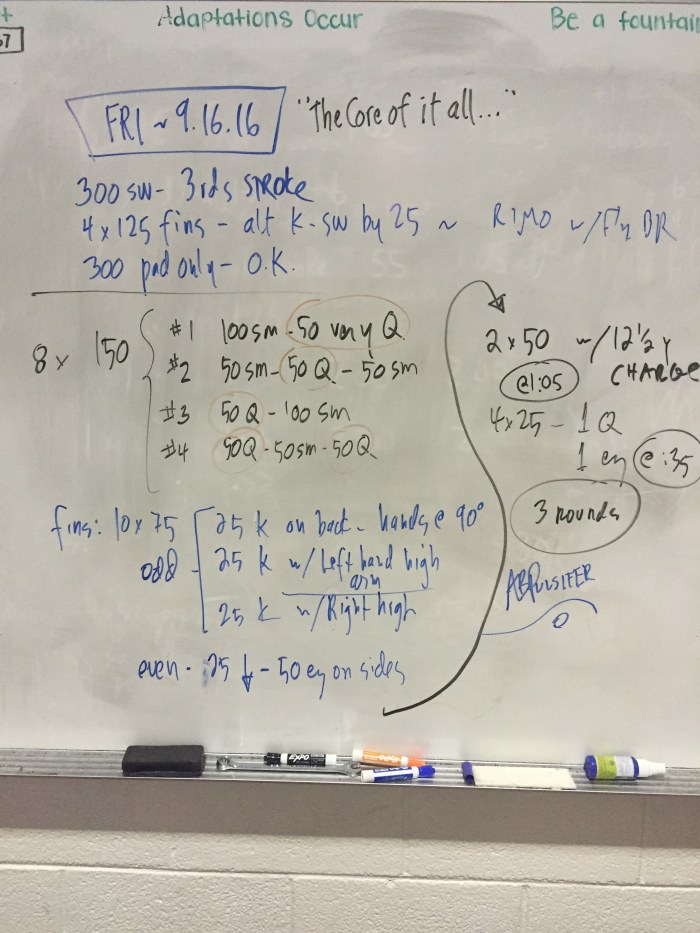 Adaptations Occur
Be a fountain
FRI ~ 9.16.16
"The Core of it all..."
300 sw - 3rds stroke
4 x 125 fins - alt K-sw by 25 ~ RIMO w/Fly DR
300 pad only - O.K.
8 x 150
#1 100 sm - 50 very Q
#2 50 sm - 50 Q - 50 sm
#3 50 Q - 100 sm
#4 50Q - 50 sm - 50 Q
fins: 10 x 75
odd
25 K on back - hands @ 90°
25 K w/Left hand high
arm
25 K w/Right high
even - 25 ↓ - 50 ey on sides
2 x 50 w/12 ½ y
CHARGE
@1:05
4 x 25 - 1 Q
1 ey @ :35
3 rounds
EXPO